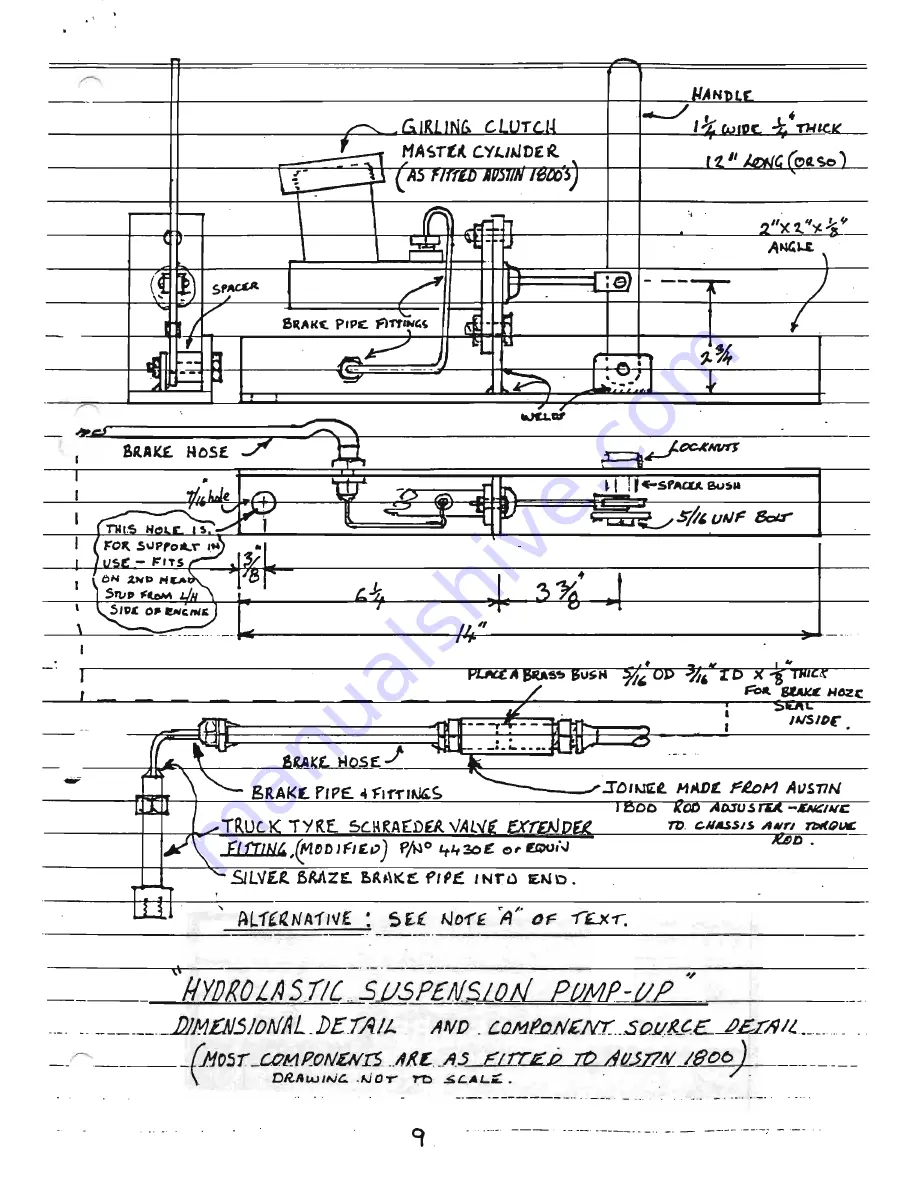 HANDLE
1 1/4 WIDE 1/4" THICK
12" LONG (OR SO)
GIRLING CLUTCH
MASTER CYLINDER
(AS FITTED AUSTIN 1800'S)
2" X 2" X 1/8"
ANGLE
SPACER
BRAKE PIPE FITTINGS
2 3/4
WELDS
BRAKE HOSE
LOCKNUTS
SPACER BUSH
5/16 UNF BOLT
7/16" hole
THIS HOLE IS
FOR SUPPORT IN
USE - FITS
ON 2ND HEAD
STUD FROM L/H
SIDE OF ENGINE
3/8"
6 1/4
3 3/8"
14"
PLACE A BRASS BUSH 5/16" OD 3/16" ID X 1/8" THICK
FOR BRAKE HOZE
SEAL
INSIDE.
BRAKE HOSE
BRAKE PIPE & FITTINGS
JOINER MADE FROM AUSTIN
1800 ROD ADJUSTER - ENGINE
TO CHASSIS ANTI TORQUE
ROD.
TRUCK TYRE SCHRAEDER VALVE EXTENDER
FITTING, (MODIFIED) P/No 4430E or EQUIV
SILVER BRAZE BRAKE PIPE INTO END.
ALTERNATIVE: SEE NOTE "A" OF TEXT.
"HYDROLASTIC SUSPENSION PUMP-UP"
DIMENSIONAL DETAIL AND COMPONENT SOURCE DETAIL.
(MOST COMPONENTS ARE AS FITTED TO AUSTIN 1800)
DRAWING NOT TO SCALE.
9
manualshive.com